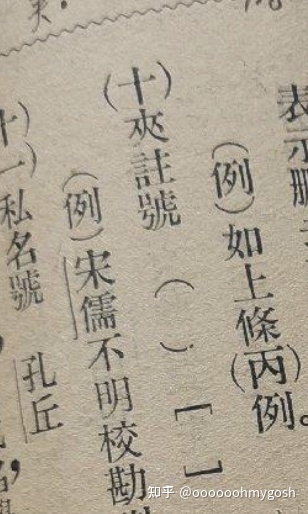 表示
(例)如上條(丙)例。
(十)夾註號 ( ) [ ]
(例)宋儒不明校勘
十一)私名號 孔丘
知乎 @oooooohmygosh